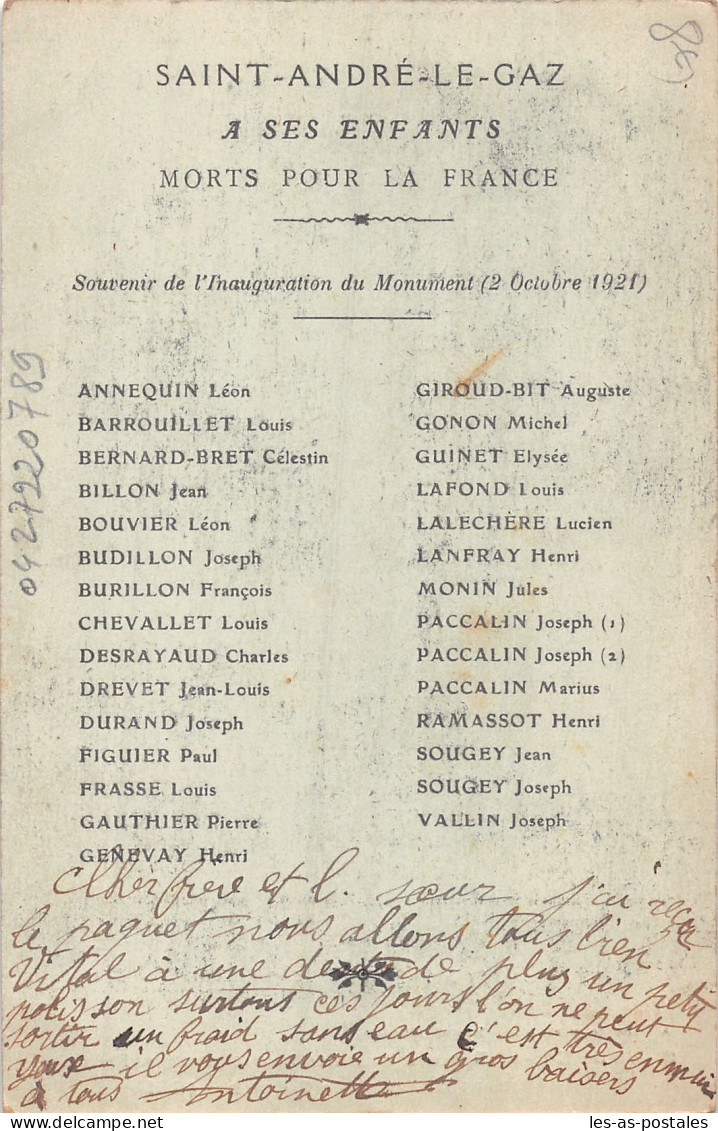 SAINT-ANDRÉ-LE-GAZ
A SES ENFANTS
MORTS POUR LA FRANCE
Souvenir de l'Inauguration du Monument (2 Octobre 1921)
ANNEQUIN Léon
BARROUILLET Louis
BERNARD-BRET Célestin
BILLON Jean
BOUVIER Léon
BUDILLON Joseph
BURILLON François
CHEVALLET Louis
DESRAYAUD Charles
DREVET Jean-Louis
DURAND Joseph
FIGUIER Paul
FRASSE Louis
GAUTHIER Pierre
GENEVAY Henri
GIROUD-BIT Auguste
GONON Michel
GUINET Elysée
LAFOND Louis
LALECHÈRE Lucien
LANFRAY Henri
MONIN Jules
PACCALIN Joseph (1)
PACCALIN Joseph (2)
PACCALIN Marius
RAMASSOT Henri
SOUGEY Jean
SOUGEY Joseph
VALLIN Joseph
Cher frère et l. sœur j'ai reçu
le paquet nous allons tous bien
Vital à une dent de plus un petit
polisson surtout ces jours l'on ne peut
sortir un froid sans eau c'est très ennui
yeux il vous envoie un gros baisers
à tous Antoinette
0427220789
(38)
delcampe.net
les-as-postales